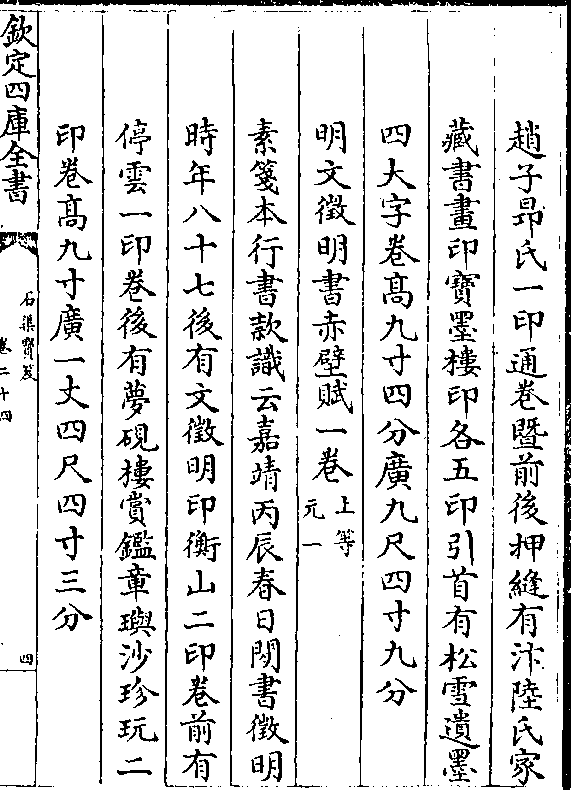 趙子昂氏一印通卷暨前後押縫有汴陸氏家
藏書畫印寶墨樓印各五印引首有松雪遺墨
四大字卷髙九寸四分廣九尺四寸九分
明文徵明書赤壁賦一卷上等
元一
素箋本行書款識云嘉靖丙辰春日閒書徵明
時年八十七後有文徵明印衡山二印卷前有
停雲一印卷後有夢硯樓賞鑑章璵沙珍玩二
印卷髙九寸廣一丈四尺四寸三分
欽定四庫全書
石渠寶笈
卷二十四
四